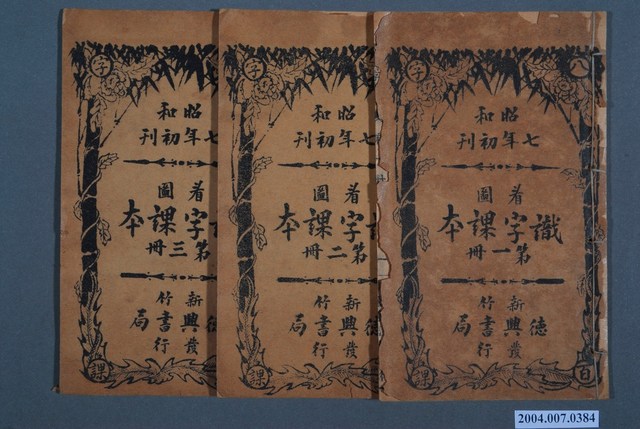 八字
昭和
七年初刊
看圖
識字課本
第一冊
新竹
德興書局
發行
白課
字
昭和
七年初刊
看圖
字課本
第二冊
新竹
興書局
發行
課
字
昭和
七年初刊
看圖
字課本
第三冊
新竹
德興書局
發行
課
2004.007.0384